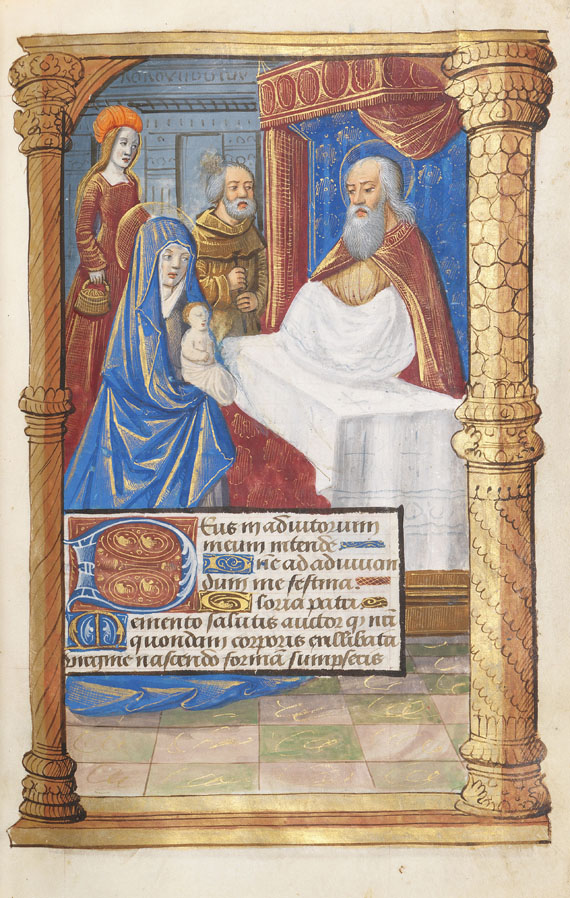 Deus in adiutorium
meum intende
Dne ad adiuuan
dum me festina.
Gloria patri
Memento salutis auctor q nri
quondam corporis ex illibata
uirgine nascendo formã sumpseris